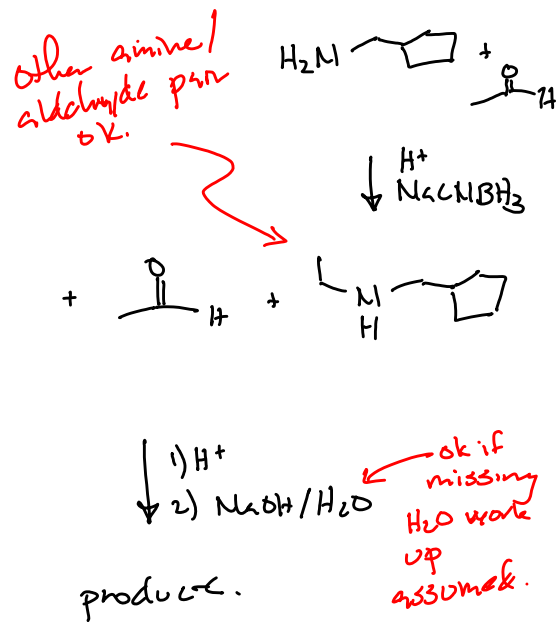 other amine/
aldehyde pair
ok.
H₂N
+
O
H
H⁺
NaCNBH₃
+
O
H
+
N
H
1) H⁺
2) NaOH/H₂O
ok if
missing
H₂O work
up
assumed.
product.